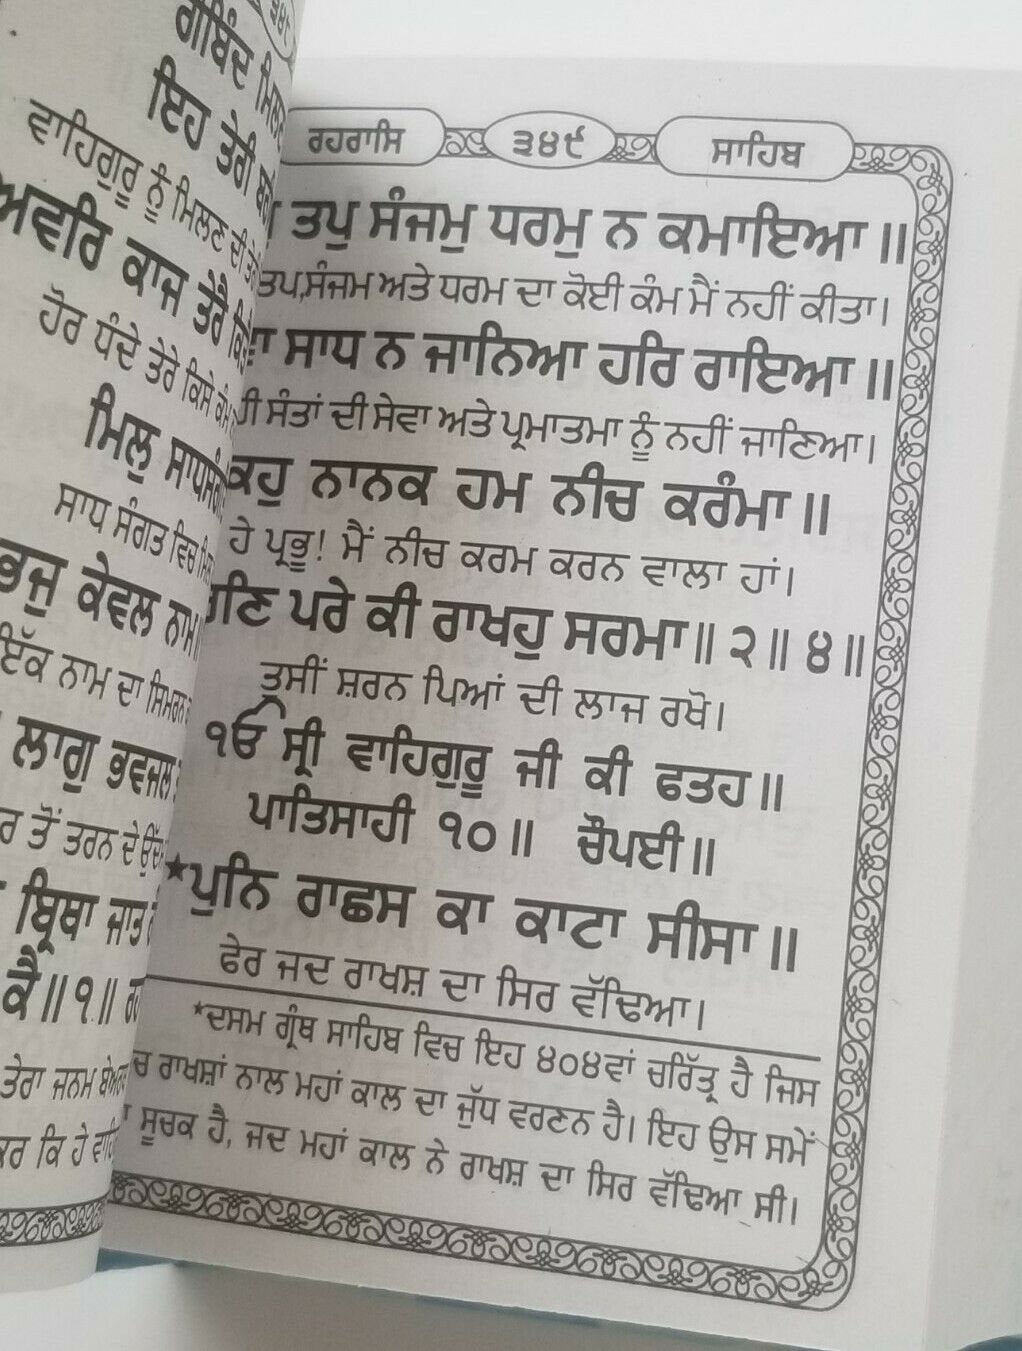 ਗੋਬਿੰਦ ਮਿਲਣ
ਇਹ ਤੇਰੀ
ਵਾਹਿਗੁਰੂ ਨੂੰ ਮਿਲਣ ਦੀ
ਅਵਰਿ ਕਾਜ ਤੇਰੈ
ਹੋਰ ਧੰਦੇ ਤੇਰੇ ਕਿਸੇ
ਮਿਲੁ
ਸਾਧ ਸੰਗਤ ਵਿਚ
ਭਜੁ ਕੇਵਲ ਨਾਮ
ਇੱਕ ਨਾਮ ਦਾ ਸਿਮਰਨ
ਲਾਗੁ ਭਵਜਲ
ਤੋਂ ਤਰਨ ਦੇ
ਬ੍ਰਿਥਾ ਜਾਤ
ਕੈ॥੧॥
ਤੇਰਾ ਜਨਮ
ਕਿ ਹੇ
ਰਹਰਾਸਿ ੩੪੯ ਸਾਹਿਬ
ਤਪੁ ਸੰਜਮੁ ਧਰਮੁ ਨ ਕਮਾਇਆ॥
ਤਪ,ਸੰਜਮ ਅਤੇ ਧਰਮ ਦਾ ਕੋਈ ਕੰਮ ਮੈਂ ਨਹੀਂ ਕੀਤਾ।
ਸਾਧ ਨ ਜਾਨਿਆ ਹਰਿ ਰਾਇਆ॥
ਸੰਤਾਂ ਦੀ ਸੇਵਾ ਅਤੇ ਪ੍ਰਮਾਤਮਾ ਨੂੰ ਨਹੀਂ ਜਾਣਿਆ।
ਕਹੁ ਨਾਨਕ ਹਮ ਨੀਚ ਕਰੰਮਾ॥
ਹੇ ਪ੍ਰਭੂ! ਮੈਂ ਨੀਚ ਕਰਮ ਕਰਨ ਵਾਲਾ ਹਾਂ।
ਪਰੇ ਕੀ ਰਾਖਹੁ ਸਰਮਾ॥ ੨॥ ੪॥
ਤੁਸੀਂ ਸ਼ਰਨ ਪਿਆਂ ਦੀ ਲਾਜ ਰਖੋ।
ੴ ਸ੍ਰੀ ਵਾਹਿਗੁਰੂ ਜੀ ਕੀ ਫਤਹ॥
ਪਾਤਿਸਾਹੀ ੧੦॥ ਚੌਪਈ॥
*ਪੁਨਿ ਰਾਛਸ ਕਾ ਕਾਟਾ ਸੀਸਾ॥
ਫੇਰ ਜਦ ਰਾਖਸ਼ ਦਾ ਸਿਰ ਵੱਢਿਆ।
*ਦਸਮ ਗ੍ਰੰਥ ਸਾਹਿਬ ਵਿਚ ਇਹ ੪੦੪ਵਾਂ ਚਰਿੱਤ੍ਰ ਹੈ ਜਿਸ
ਰਾਖਸ਼ਾਂ ਨਾਲ ਮਹਾਂ ਕਾਲ ਦਾ ਜੁੱਧ ਵਰਣਨ ਹੈ। ਇਹ ਉਸ ਸਮੇਂ
ਸੂਚਕ ਹੈ, ਜਦ ਮਹਾਂ ਕਾਲ ਨੇ ਰਾਖਸ਼ ਦਾ ਸਿਰ ਵੱਢਿਆ ਸੀ।